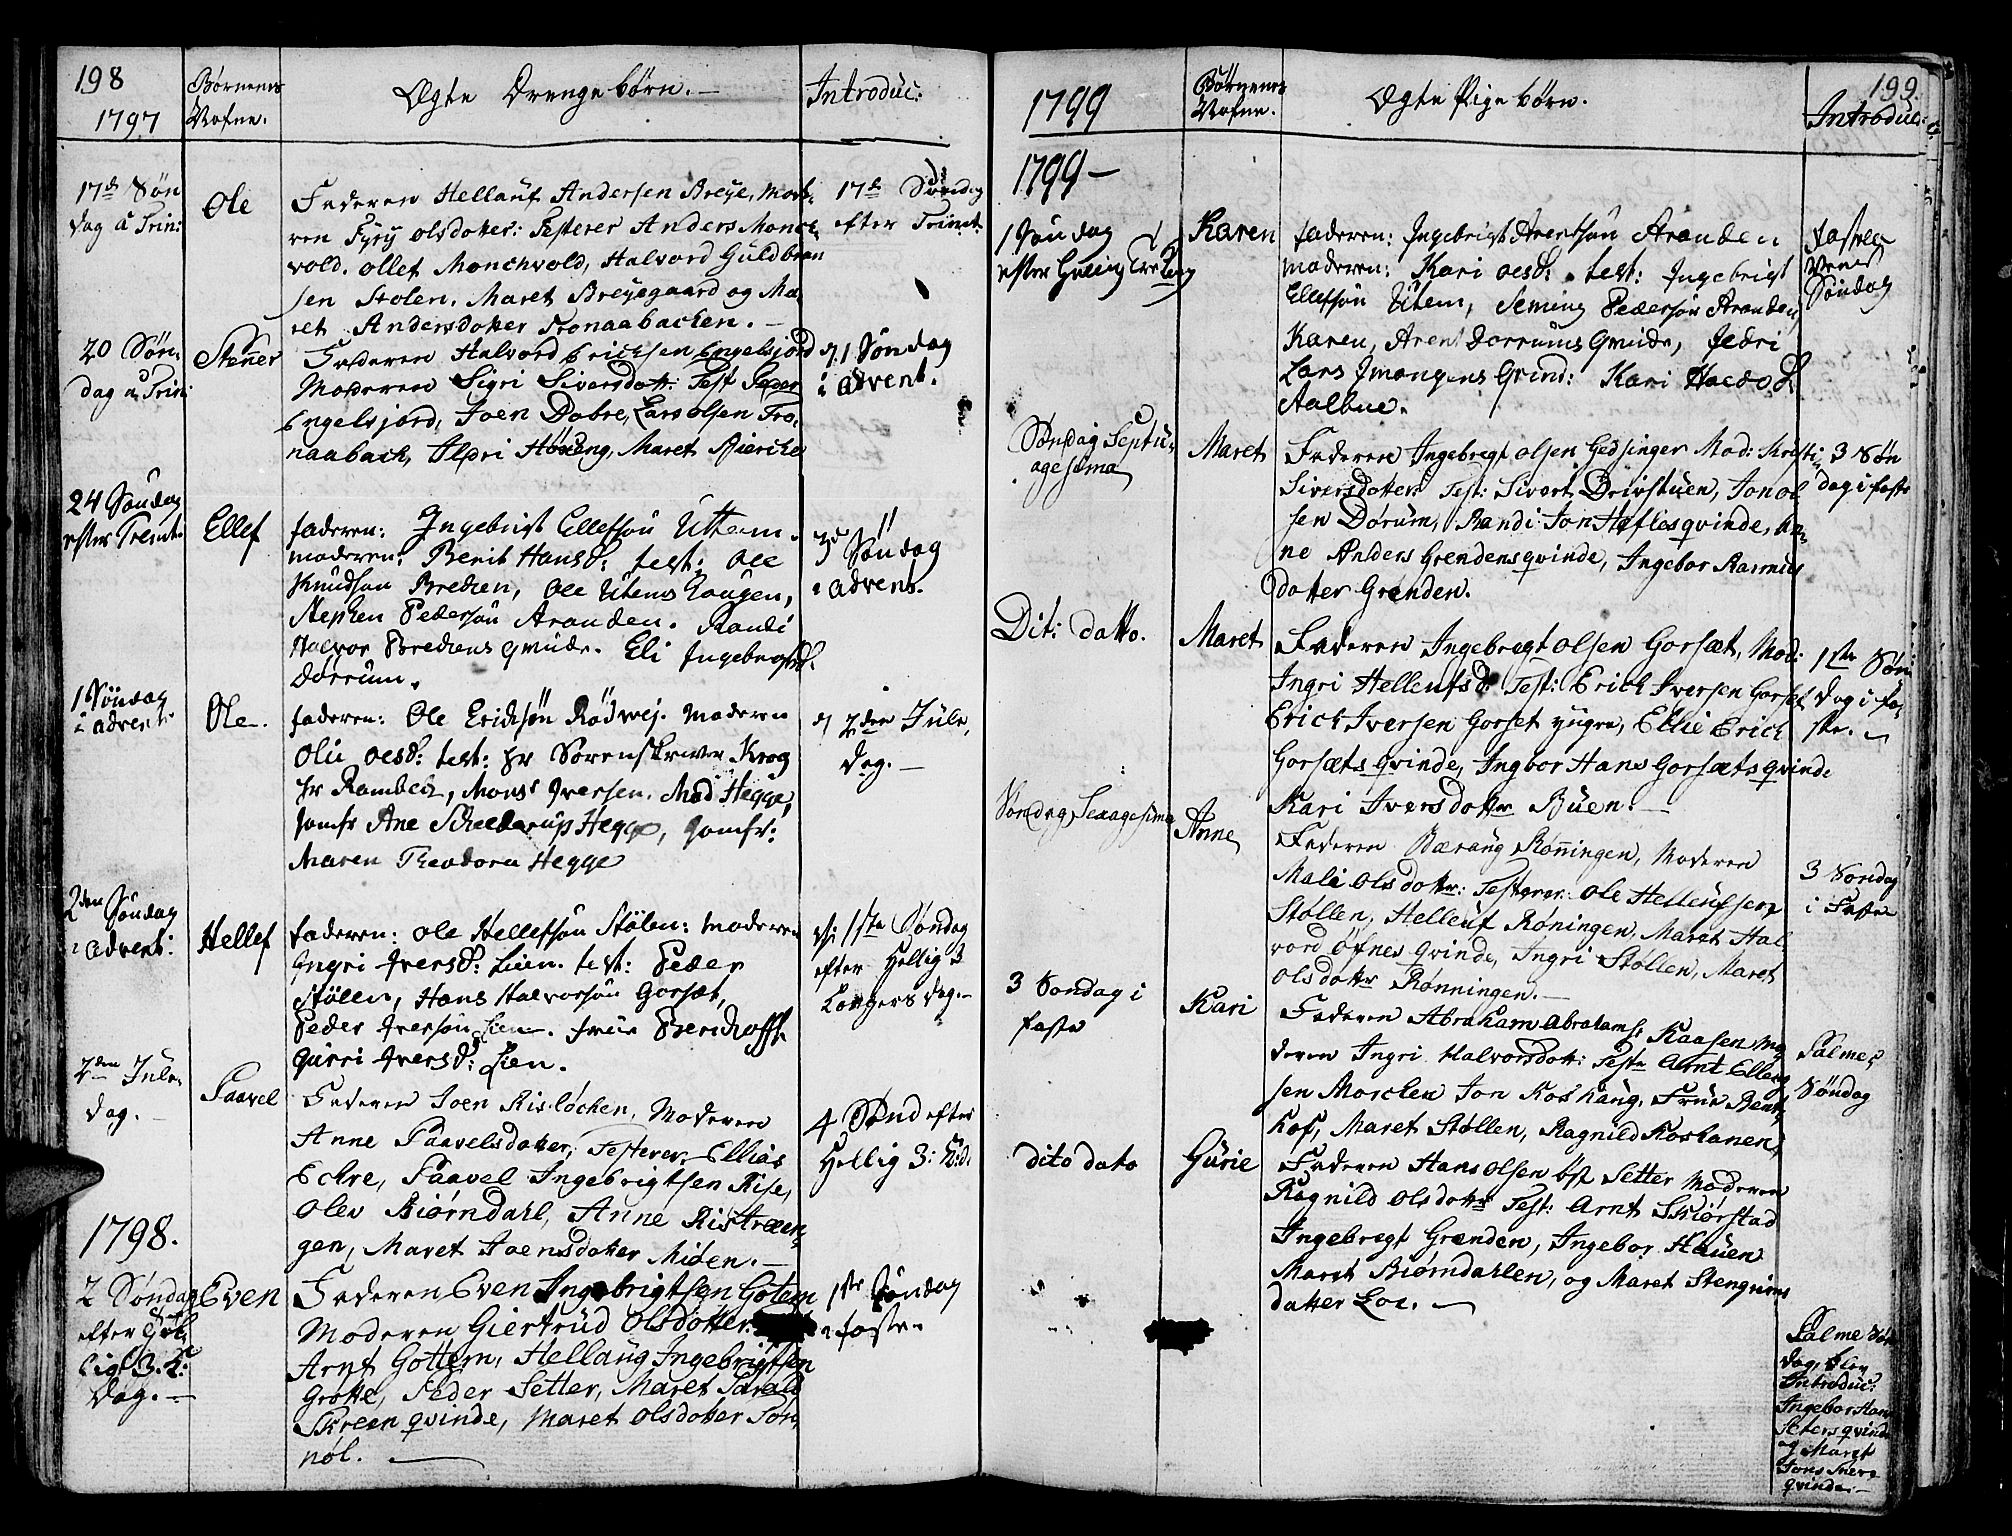 198
1797
Børnenes
Nafne.
Ægte Drengebørn. —
Introduc:
17de Søn
dag a Trin:
Ole
Faderen Hellauf Andersen Breye, Mode-
ren Fyry olsdotter: Testerer Anders Monch-
vold. ollet Monchvold, Halvord Güldbran
sen Stolen. Maret Breyegaard og Ma-
ret Andersdotter Tronaabacken. —
17de Søndag
efter Trinit.
20 Søn-
dag a Trin:
Stener
Faderen Halvord Ericksen Engelsjord
Moderen Sigri Siversdott: Test Peder
Engelsjord, Joen Dobre, Lars olsen Tro-
naaback, Høüeng, Maret Biercke
1 Søndag
i advent.
24 Søndag
efter Trinit.
Ellef
faderen: Ingebrigt Ellefsøn Uttem.
moderen: Berit Hansd: test: Ole
Knudsøn Bredien, Ole Utems Haugen,
Stephen Pedersøn Aranden. Randi
Halvor Brediens qvinde. Eli Ingebrigtsd.
Dørrum.
3d Søndag
i advent.
1 Søndag
i advent
Ole.
faderen: Ole Eriksøn Rødvej. Moderen
Oliv oesd: test: Hr Sorenskriver Krog
Hr Rambech, Mons: Iversen. Mad Hegge,
Jomfr Ane Schelderup Hegge, Jomfr:
Maren Theodora Hegge
2den Jule-
dag. —
2den Søndag
i advent:
Hellef
faderen: Ole Hellefsøn Stölen: moderen
Ingri Iversd: Lien. test: Peder
Stölen, Hans Halvorsøn Gorset,
Peder Iversøn Lien. frue Berchoff.
Gurri Iversd: Lien.
1ste Søndag
efter Hellig 3
Kongers dag. —
2den Jule-
dag. —
Paavel
Faderen Joen Risløchen, Moderen
Anne Paavelsdotter, Testerer Ellias
Eckre, Paavel Ingebrigtsen Rise,
Olev Biørndahl, Anne Ristræen-
gen, Maret Joensdotter Miøen. —
4 Sønd efter
Hellig 3: K:d.
1798.
2 Søndag
efter Hel-
lig 3. K:
Dag. —
Even
Faderen Even Ingebrigtsen Gotem
Moderen Giertrüd Olsdotter.
Arnt Gottem, Hellaug Ingebrigtsen
Grøtte, Peder Setter, Maret Harald
Skreen qvinde, Maret Olsdotter Søn-
nøl. —
1ste Søndag
i faste.
199.
1799
Børnenes
Nafne.
Ægte Pigebørn.
Introduc:
1799 —
1 Søndag
efter Hellig Tre Kong
Karen
faderen: Ingebrigt Arentsøn Aranden
moderen: Kari oesd: test: Ingebrigt
Ellefsøn Utem, Seming Pedersøn Aranden,
Karen, Arent Dorrums qvinde, Sedri
Lars Imangens Grind: Kari Haldo d.
Aalbue.
Fastela-
vens
Søndag
Søndag Septu-
agesima
Maret
Faderen Ingebregt olsen Gedsinger Mod: Kristi
Siversdotter Test: Sivert Drivstüen, Jon ol
sen Dørum, Randi Jon Hafles qvinde, An-
ne Anders Grendens qvinde, Ingebor Rasmus
dotter Grenden.
3 Søn
dag i faste
Dit: datto.
Maret
Faderen Ingebregt olsen Gorsæt, Mod:
Ingri Hellenfsd: Test: Erich Iversen Gorset,
Erich Iversen Gorset yngre, Ellie Erich
Gorsæts qvinde, Ingbor Hans Gorsæts qvinde
Kari Iversdotter Büen. —
1ste Søn
dag i fa-
ste. —
Søndag Sexagesima
Anne
Faderen Bærang Rønningen, Moderen
Mali olsdotter: Testerer: Ole Hellenfsen
Støllen, Hellenf Røningen, Maret Hal
vord Öfnes qvinde, Ingri Støllen, Maret
Olsdotter Rønningen. —
3 Søndag
i Faste
3 Søndag i
faste
Kari
Faderen Abraham Abrahams: Kaasen Mo-
deren Ingri Halvorsdott: Teste Arnt Elling
sen Morchen Jon Koshaug, Frue Bent-
kof, Maret Støllen, Ragnild Koshauen,
Palme-
Søndag
dito dato
Gürie
Faderen Hans Olsen Øst Setter Moderen
Ragnild Olsdotter Test: Arnt Skiørstad
Ingebregt Grænden, Ingebor Haüen
Maret Biørndahlen, og Maret Stengrims
datter Loe. —
Palme Søn
dag, blev
Introduc:
Ingebor Hans
Seters qvinde
og Maret
Jons
qvinde. —